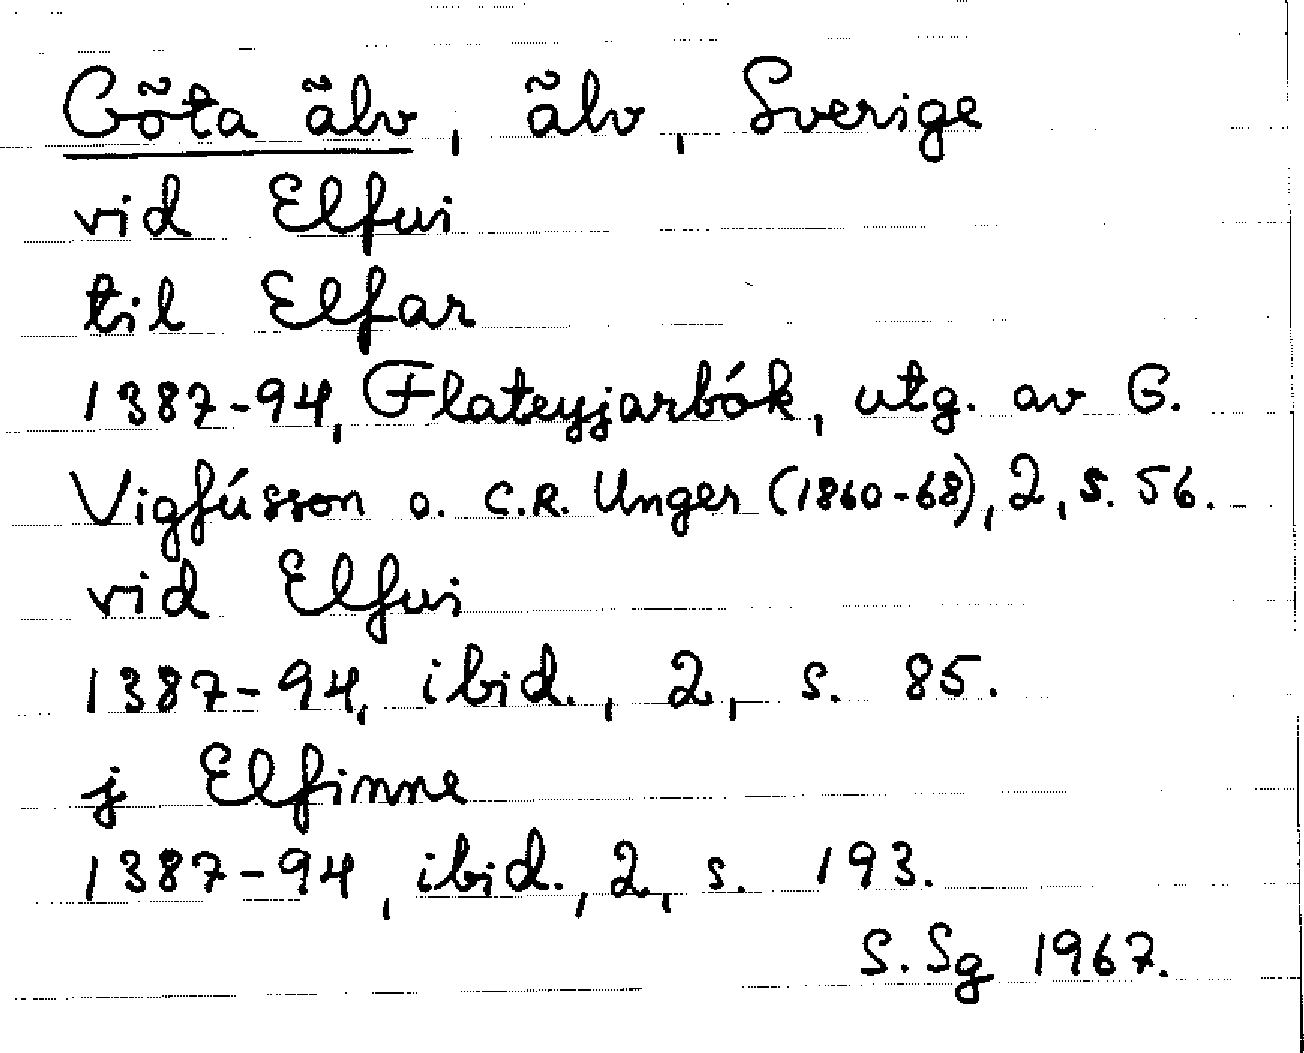 Göta älv, älv, Sverige
vid Elfui
til Elfar
1387-94, Flateyjarbók, utg. av G.
Vigfússon o. C.R. Unger (1860-68), 2, s. 56.
vid Elfui
1387-94, ibid., 2, s. 85.
j Elfinne
1387-94, ibid., 2, s. 193.
S. Sg 1967.